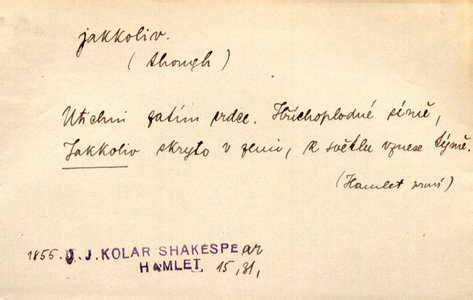 jakkoliv.
(though)
Utichni zatím srdce. Hříchoplodné símě,
Jakkoliv skryto v zemi, k světlu vznese týmě.
(Hamlet praví)
1855. J. J. KOLAR SHAKESPEar
HAMLET 15, 31,